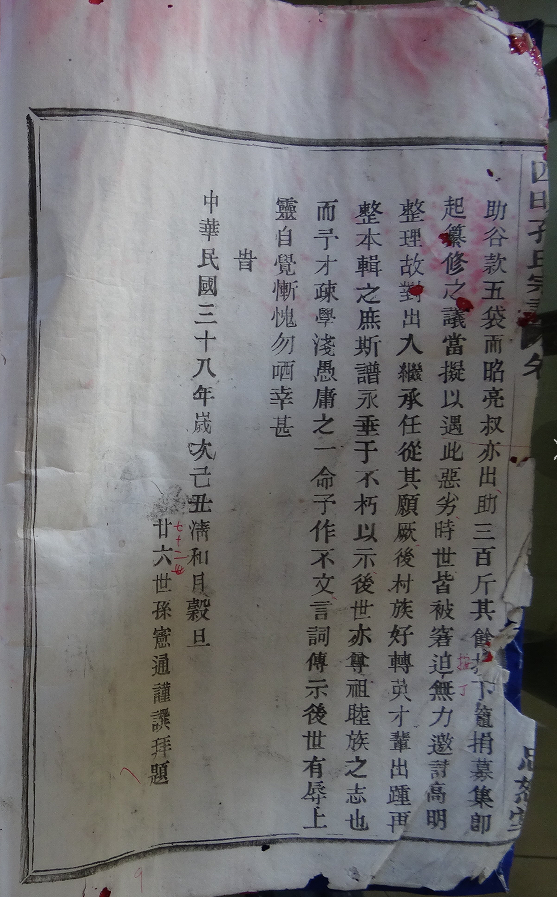 四明孔氏宗譜 忠恕堂
助谷款五袋而昭亮叔亦出助三百斤其餘按丁籠捐募集卽
起纂修之議當擬以遇此惡劣時世皆被窘迫無力邀討高明
整理故對出入繼承任從其願厥後村族好轉英才輩出踵再
整本輯之庶斯譜永垂于不朽以示後世亦尊祖睦族之志也
而予才疎學淺愚庸之一命予作不文言詞傳示後世有辱上
靈自覺慚愧勿哂幸甚
旹
中華民國三十八年嵗次己丑清和月穀旦
七十二
廿六世孫憲通謹譔拜題